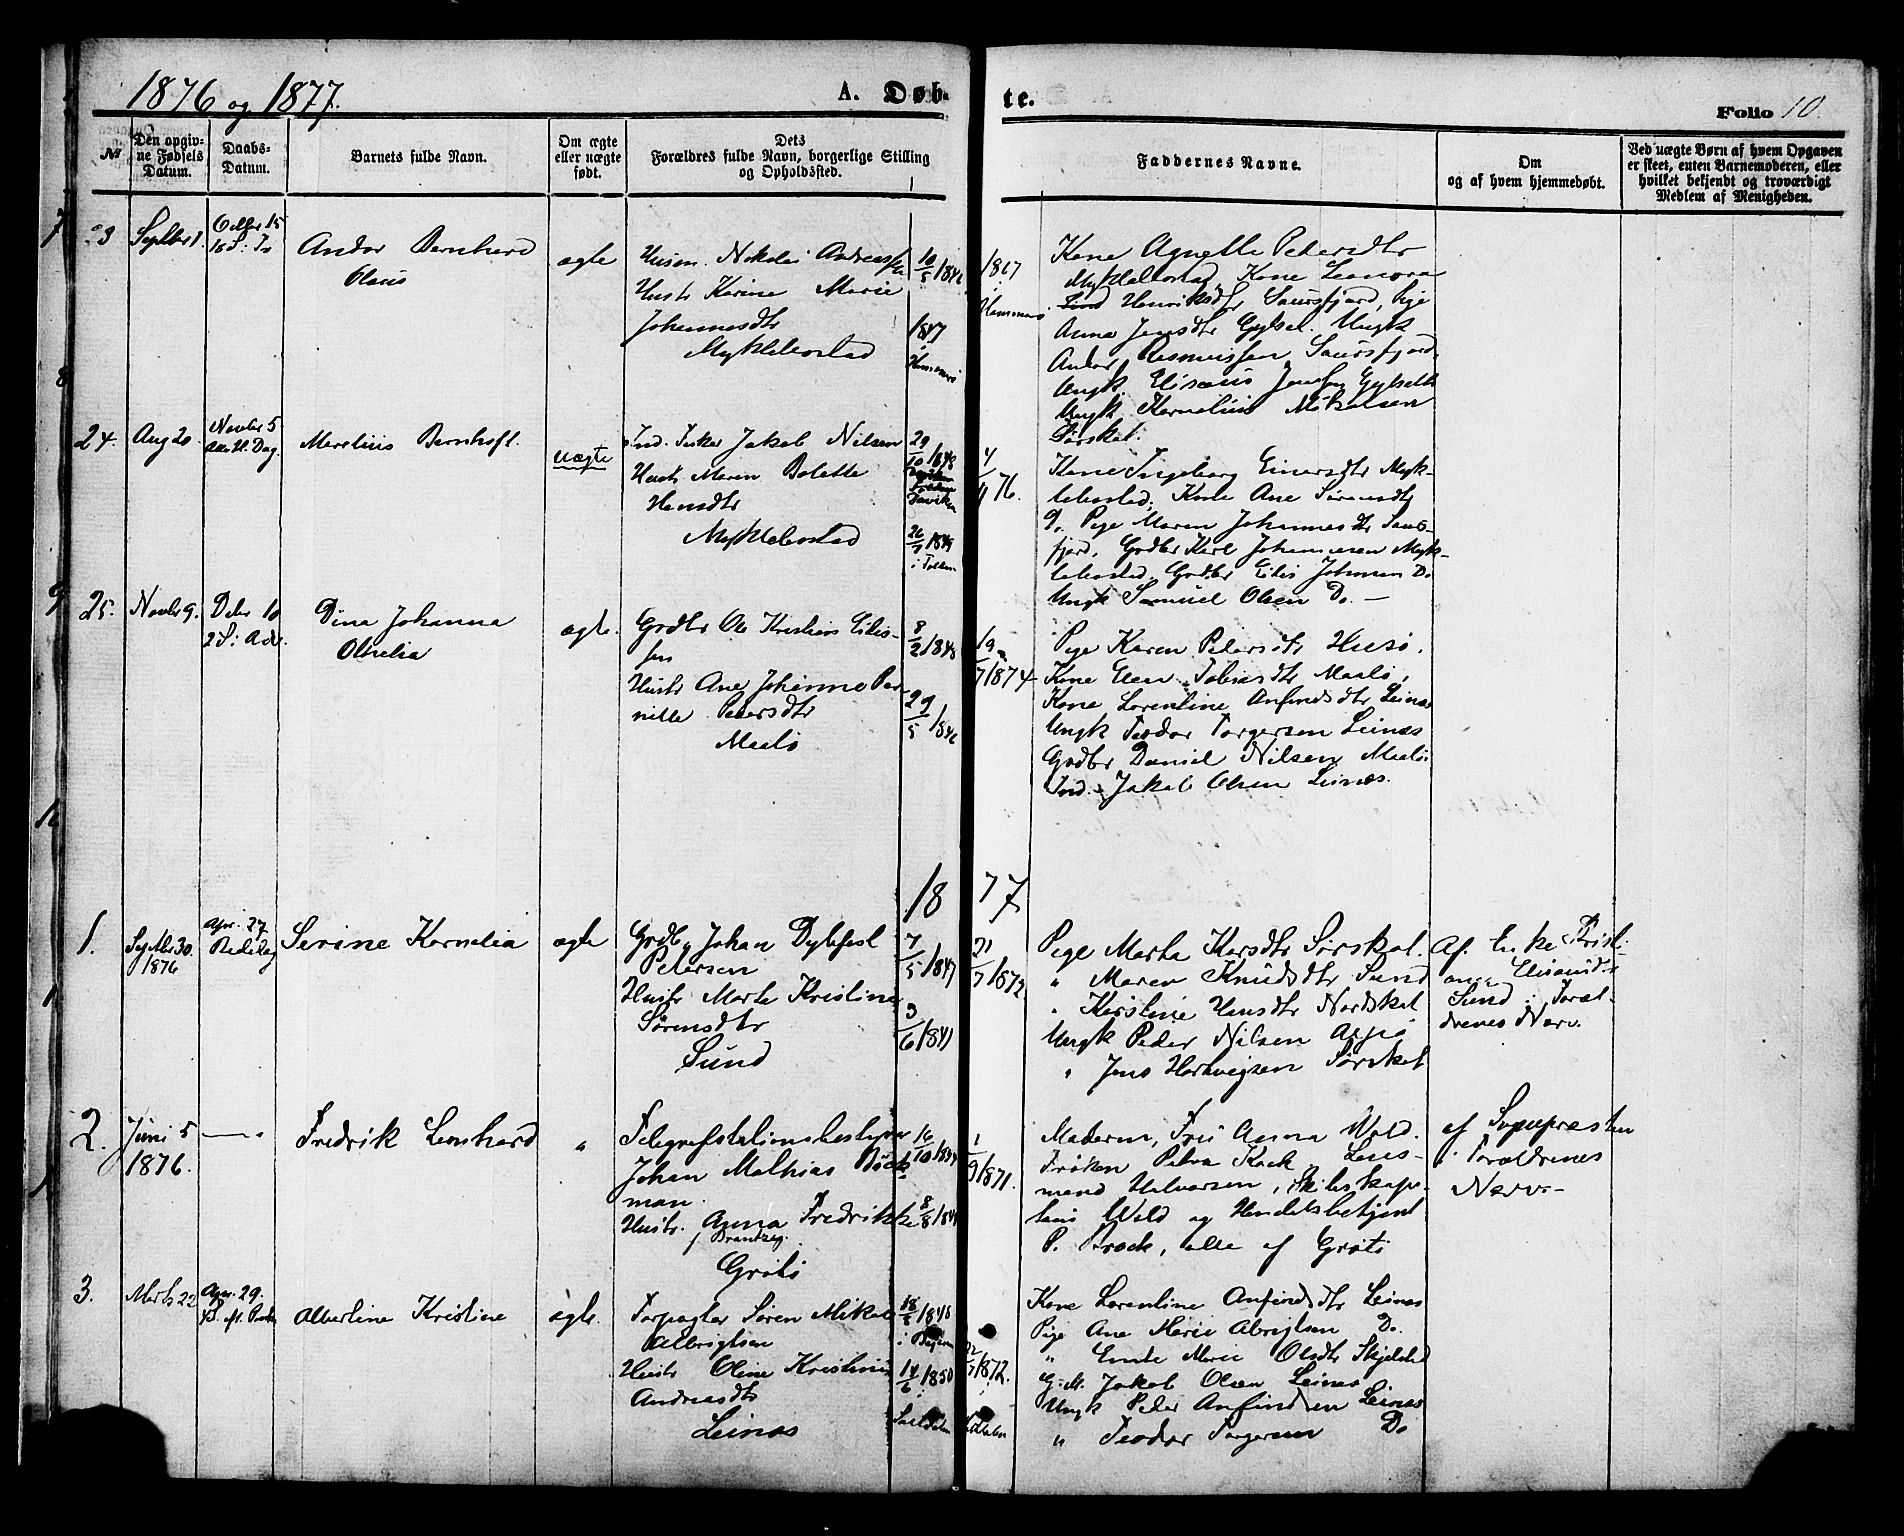 1876 og 1877.
A. Døb-
te.
Folio 10.
№
Den opgiv-
ne Fødsels
Datum.
Daabs-
Datum.
Barnets fulde Navn.
Om ægte
eller uægte
født.
Dets
Forældres fulde Navn, borgerlige Stilling
og Opholdssted.
Faddernes Navne.
Om
og af hvem hjemmedøbt.
Ved uægte Børn af hvem Opgaven
er skeet, enten Barnemoderen, eller
hvilket bekjendt og troværdigt
Medlem af Menigheden.
23 Septbr 1. Octbr 15
Andor Bernhard
Olaus
ægte
Husm. Nikolai Andreassen
Hustr Karine Marie
Johannesdtr
Myklebostad
10/5 1846
1847
i
Hammerø
1867
i
Hammerø
Kone Agnette Petersdtr
Myklebostad, Kone Leonora
Henriksdtr Saursfjord, Pige
Anna Jensdtr Gylset. Ungk
Andor Rasmussen Saursfjord.
Ungk. Elisæus Jensen Gylset
Ungk Kornelius Mikalsen
Sørskot.
24. Aug 20. Novbr 5
Alle H. Dag.
Meretius Bernhoft.
uægte
Ind. Jakob Nilsen
Hustr Maren Bolette
Hansdtr
Myklebostad
29/10 1848
26/7 1849
i Folden
4/11 76.
Kone Ingeborg Einersdtr Myk-
lebostad, Kone Ane Sørensdtr
Do. Pige Maren Johannesdtr Saurs-
fjord. Grdbr Karl Johannesen Myk-
lebostad. Grdbr Eilis Johnsen Do.
Ungk Samuel Olsen Do. —
25. Novbr 9. Debr 10
2 S: Adv.
Dina Johanna
Olnelia
ægte.
Grdbr Ole Kristian Eilis-
sen
Hustr Ane Johanna Per-
nille Petersdtr
Maalø
8/2 1848
29/5 1846
19/7 1874
Pige Karen Petersdtr Husø.
Kone Elen Tobiasdtr Maalø,
Kone Lorentine Anfindsdtr Leines
Ungk Teodor Torgersen Leines
Grdbr Daniel Nilsen Maalø
Ind. Jakob Olsen Leines.
18 77
1. Septbr 30.
1876
Apr. 27
Bededag
Serine Kornelia
ægte
Grdb. Johan Dyblfest
Petersen
Hustr Marte Kristine
Sørensdtr
Sund
7/5 1847
3/6 1841
21/7 1872
Pige Marta Karsdtr Sørskot.
" Maren Knudsdtr Sund
" Kirstine Hansdtr Nordskot
Ungk Peder Nilsen
" Jens Hartvigsen Sørskot
Af Enke Krist-
ane
Sund i Foræl-
drenes Nærv.
2. Juni 5
1876.
—"
Fredrik Leonhard
"
Telegrafstationsbestyrer
Johan Mathias Böck-
man.
Hustr. Anna Fredrikke
f Brantzeg.
Grøtø
16/10 1844
8/8 1849
1/9 1871.
Moderen, Fru Anna Wold.
Frøken Petra Kock, Lens-
mand Halvorsen, Skibskap-
tein Wold og Handelsbetjent
P. Brock, alle af Grøtø
af Sognepræsten
i Forældrenes
Nærv. —
3. Marts 22
Apr. 29.
Albertine Kristine
ægte.
Forpagter Søren Mikal
Albrigtsen
Hustr Oline Kristine
Andreasdtr
Leines
18/5 1848
14/6 1850
i
Saltdalen
22/7 1872.
i
Saltdalen
Kone Lorentine Anfindsdtr Leines
Pige Ane Marie Albrigtsen Do.
" Emte Marie Olsdtr Skjelstad
G.M. Jakob Olsen Leines
Ungk Peder Anfindsen Leines
" Teodor Torgersen Do